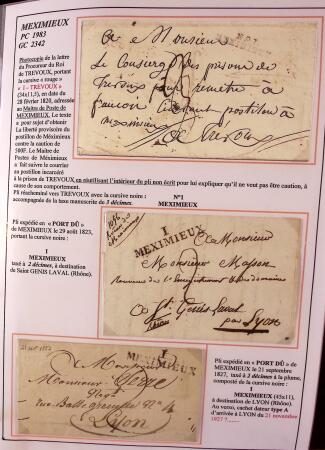 MEXIMIEUX
PC 1983
GC 2342
Photocopie de la lettre
du Procureur du Roi
de TREVOUX, portant
la cursive « rouge »
« 1 – TREVOUX »
(34x11,5), en date du
28 février 1820, adressée
au Maître de Poste de
MEXIMIEUX. Le texte a
pour sujet d'obtenir
La liberté provisoire du
postillon de Méximieux
contre la caution de
500F. Le Maître de
Postes de Méximieux
a fait suivre Ce courrier
au postillon incarcéré
à la prison de TREVOUX en réutilisant l'intérieur du pli non écrit pour lui expliquer qu'il ne veut pas être caution, à
cause de son comportement.
Pli réacheminé vers TREVOUX avec la cursive noire :
accompagnée de la taxe manuscrite de 3 décimes.
N°1
MEXIMIEUX
a Monsieur
Le Consierge des prison de
pour remettre a
postillon à
Pli expédié en « PORT DÛ »
de MEXIMIEUX le 29 août 1823,
portant la cursive noire :
1
MEXIMIEUX
taxé à 2 décimes, à destination
de Saint GENIS LAVAL (Rhône).
1
MEXIMIEUX
A Monsieur
Monsieur Masson
Receveur de l'Enregistrement & des domaines
a St Genis Laval
par Lyon
1
MEXIMIEUX
Monsieur
Rue
Lyon
Pli expédié en « PORT DÛ »
de MEXIMIEUX le 21 septembre
1827, taxé à 2 décimes à la plume,
composté de la cursive noire :
1
MEXIMIEUX (45x11),
à destination de LYON (Rhône).
Au verso, cachet dateur type A
d'arrivée à LYON du 21 novembre
1827 ?.......